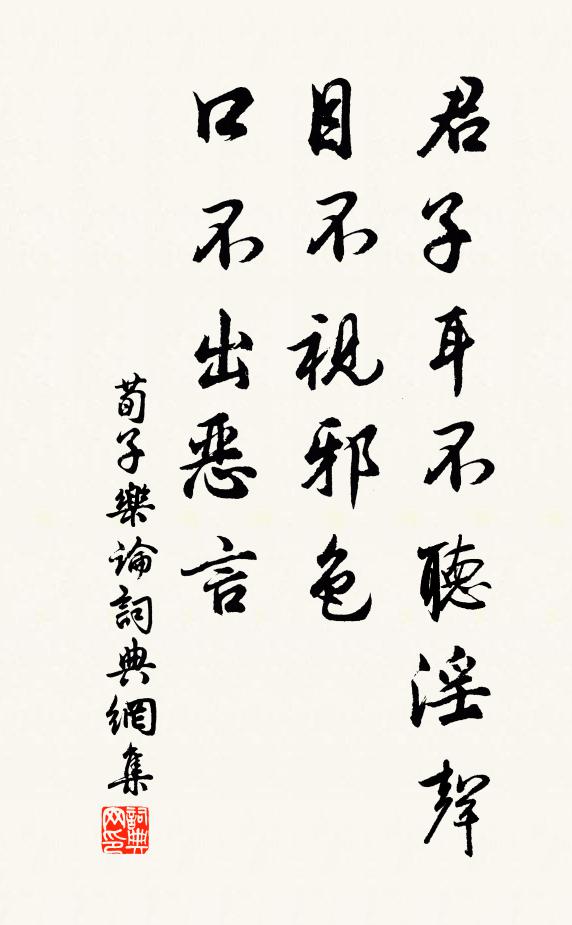 君子耳不聽淫聲
目不視邪色
口不出惡言
荀子樂論詞典網集
詞典网印